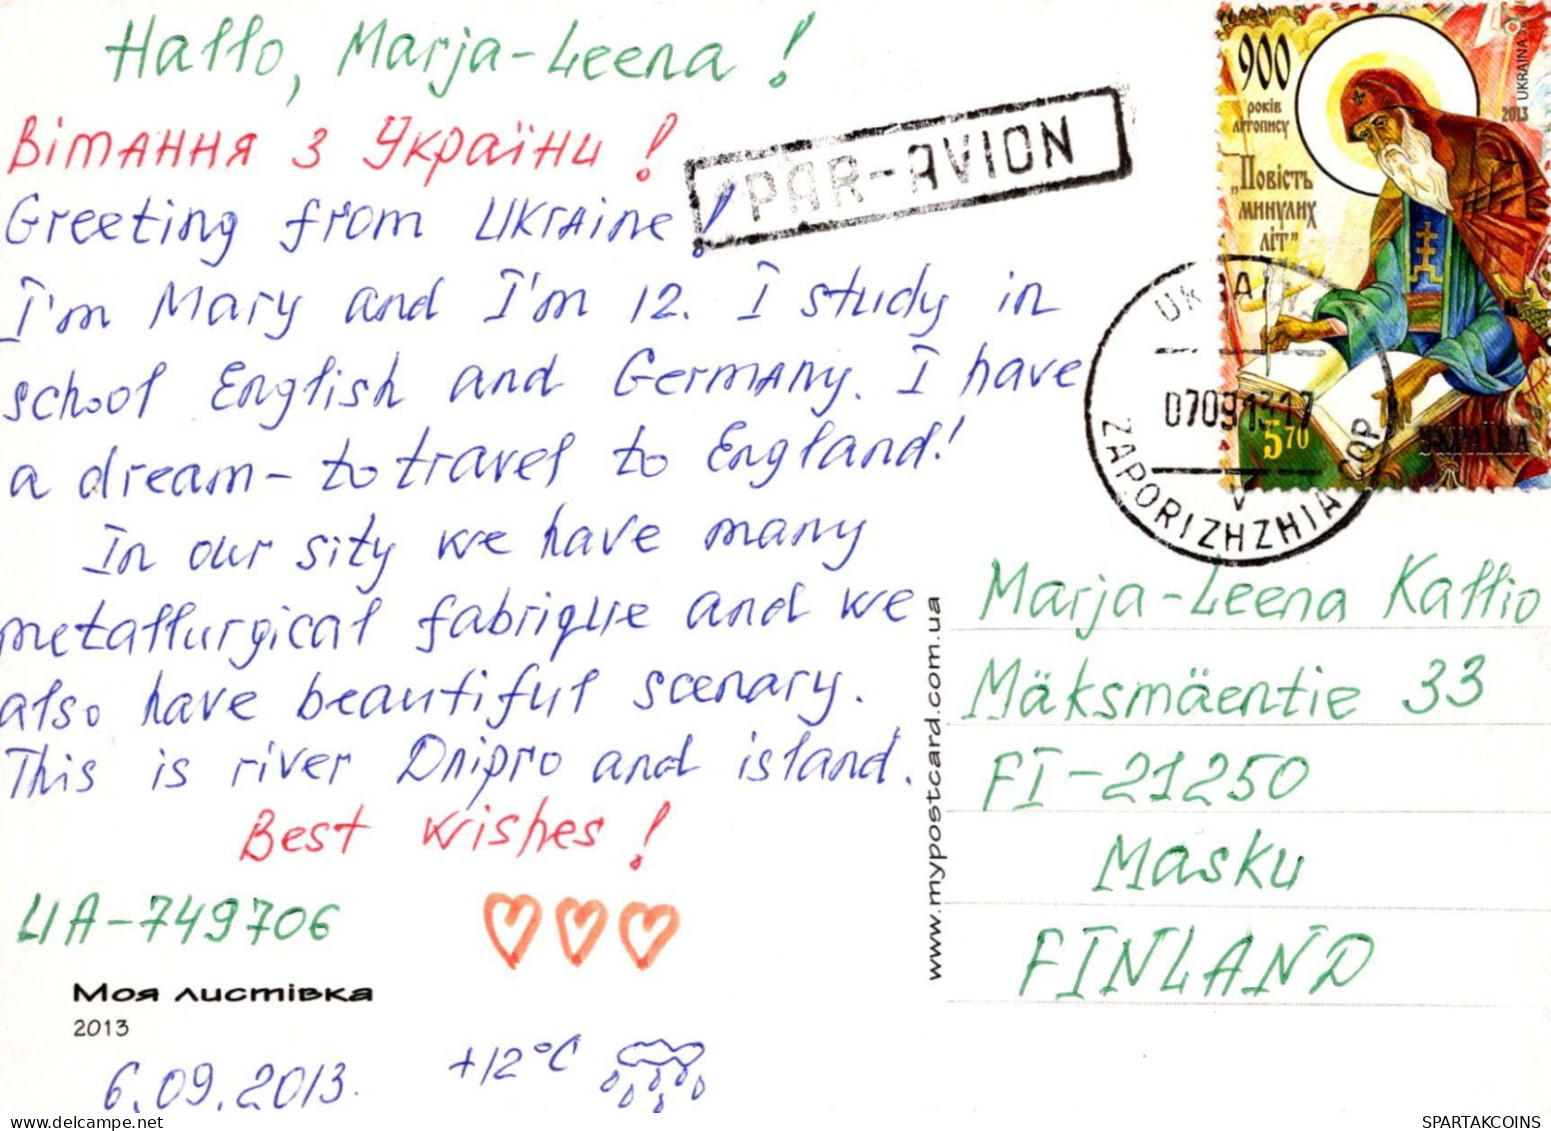 Hallo, Marja-Leena!
Вітання з України!
Greeting from Ukraine!
I'm Mary and I'm 12. I study in
school English and Germany. I have
a dream - to travel to England!
In our sity we have many
metallurgical fabrique and we
also have beautiful scenary.
This is river Dnipro and island.
Best wishes!
UA-749706
Моя листівка
2013
6.09.2013.
+12°C
PAR-AVION
900
років
літопису
„Повість
минулих
літ”
2013 UKRAINA
5.70
УКРАЇНА
UKRAINE
07091317
V
ZAPORIZHZHIA COP
www.mypostcard.com.ua
Marja-Leena Kallio
Mäksmäentie 33
FI-21250
Masku
FINLAND
SPARTAKCOINS
www.delcampe.net